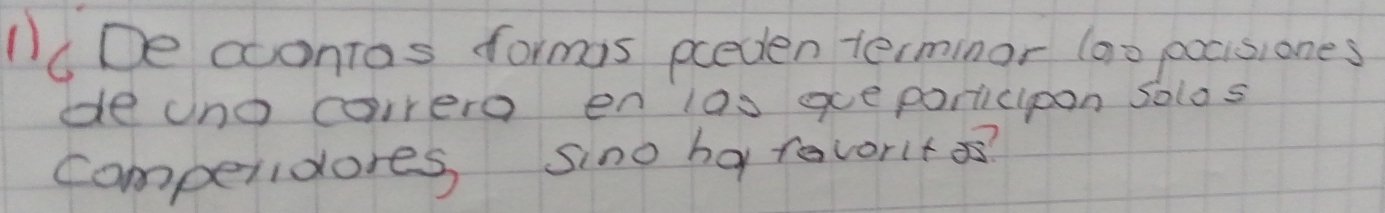 1) ¿De cuantas formas pueden terminar las pocisiones
de una carrera en las que participan solo 5
competidores, si no hay favoritos?